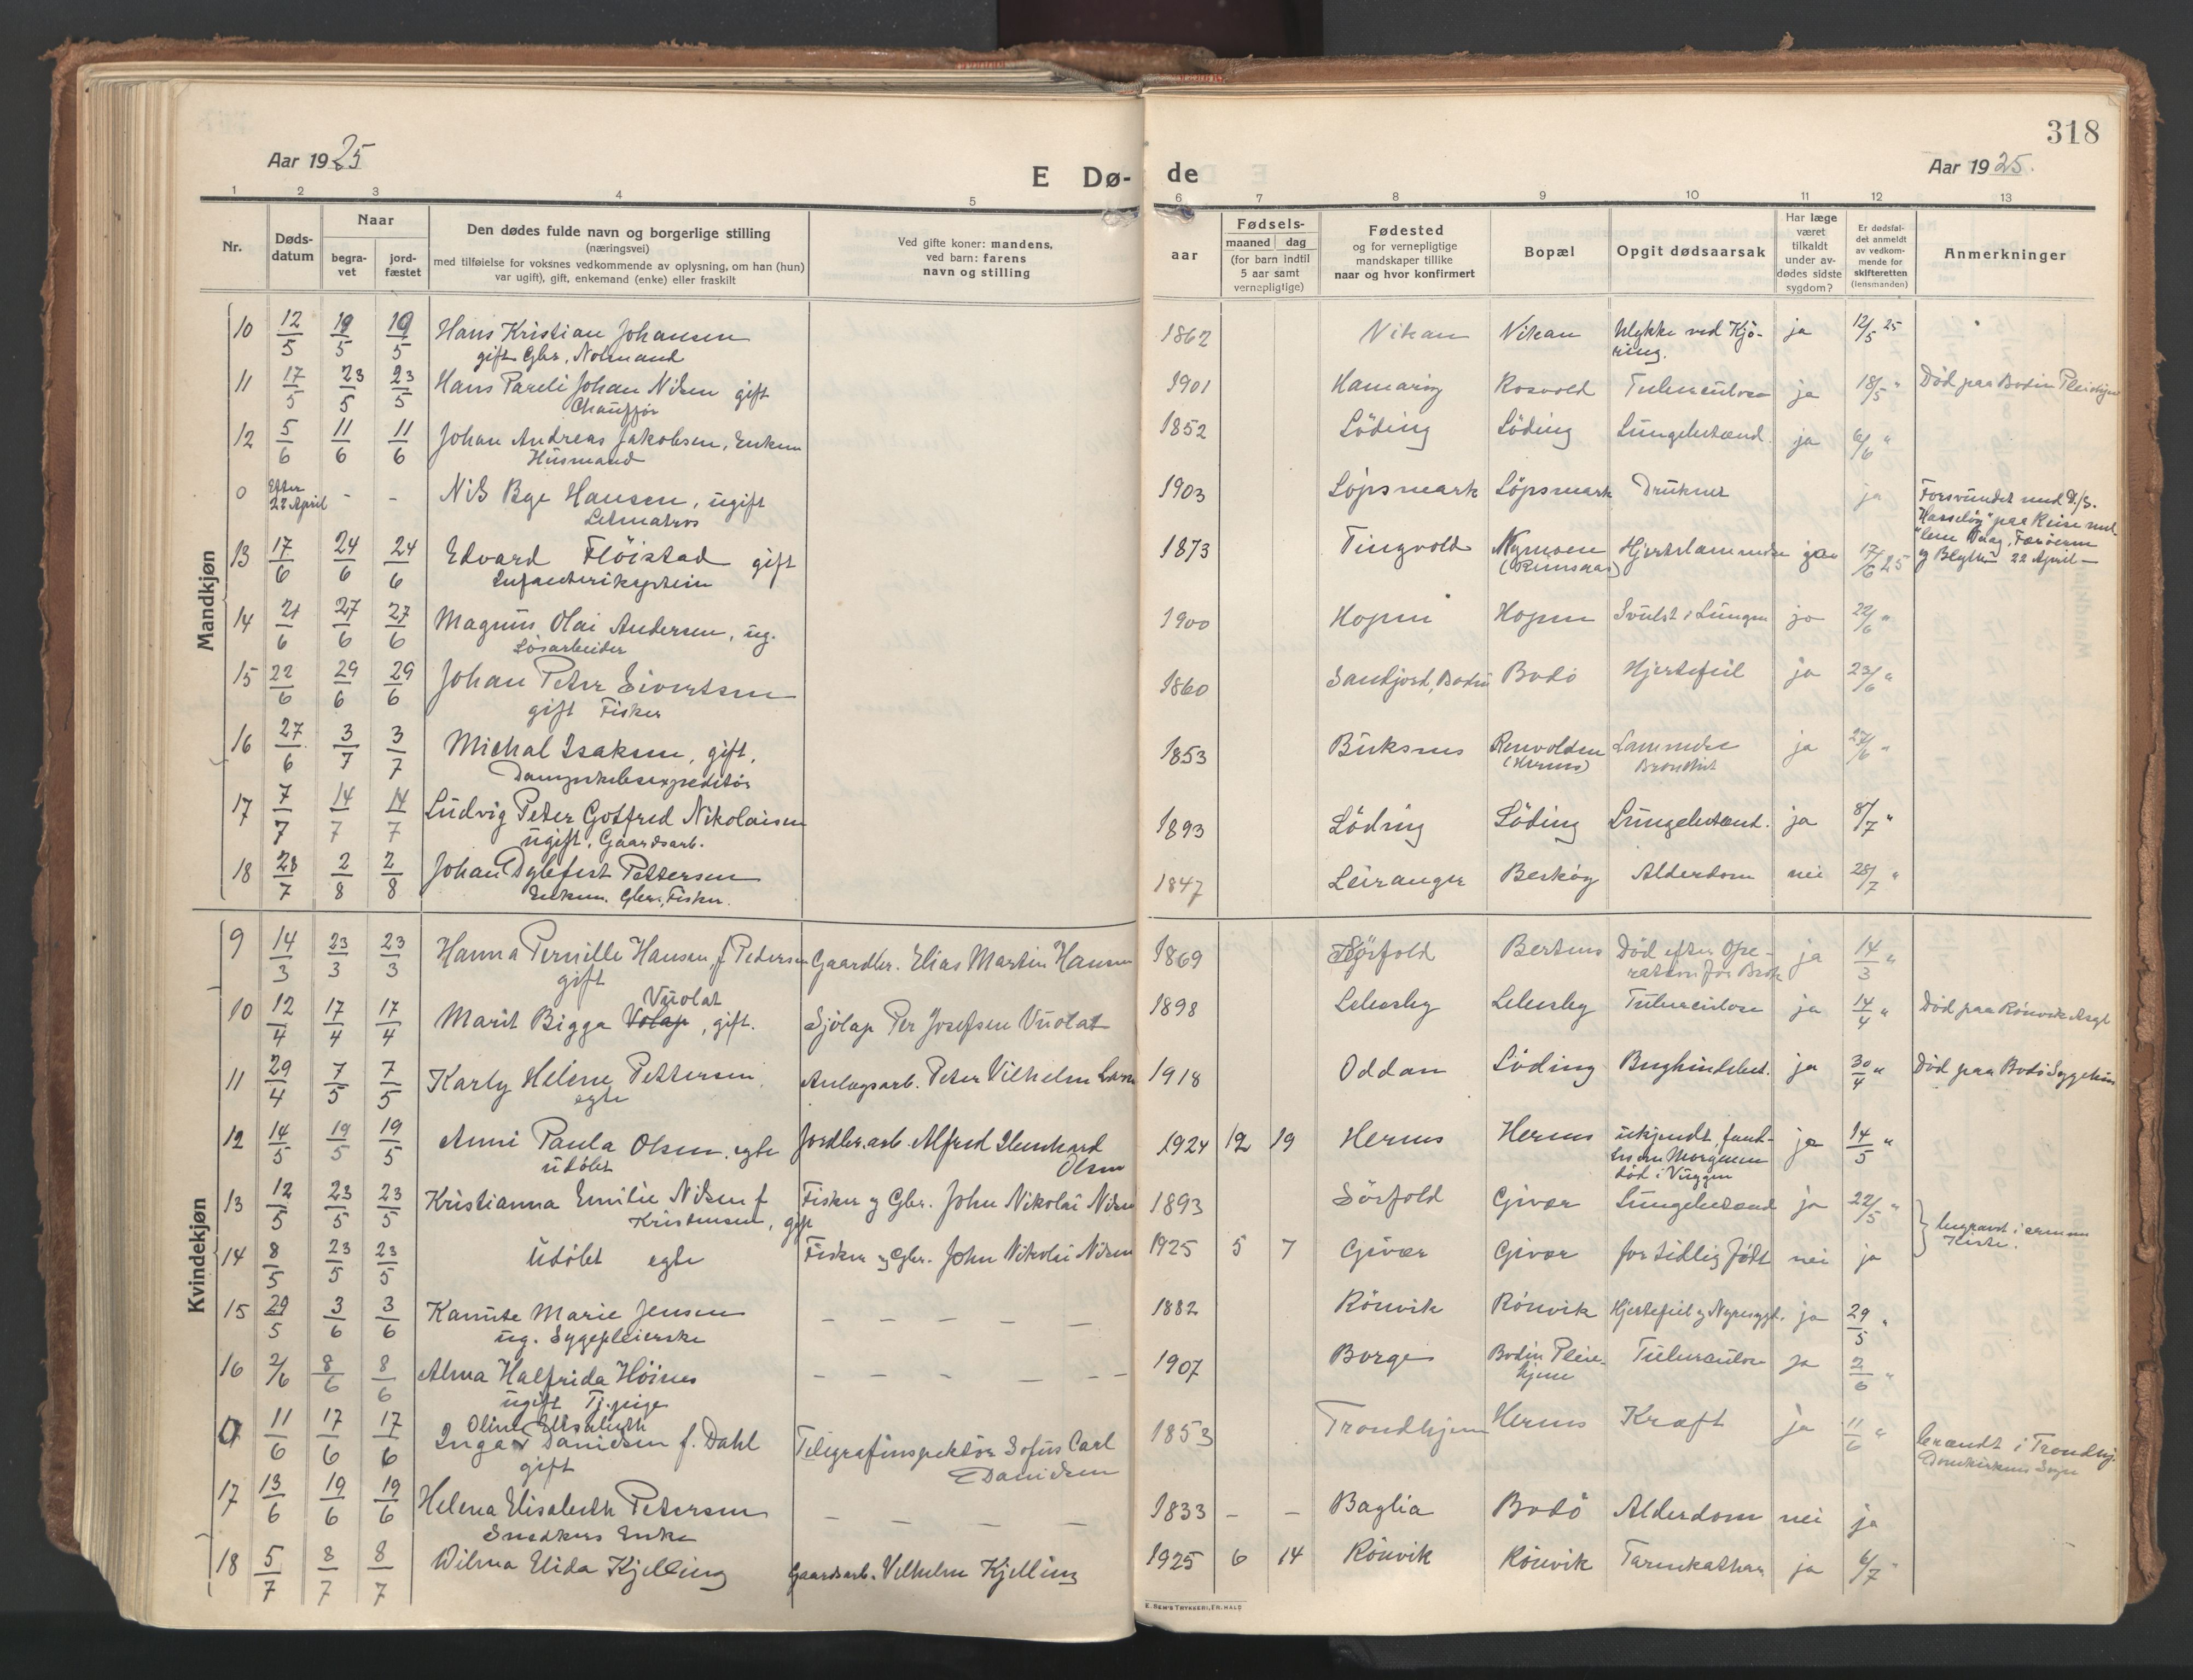 318
Aar 1925
E Dø-
de
Aar 1925.
1 2 3 4 5 6 7 8 9 10 11 12 13
Nr.
Døds-
datum
Naar
begra-
vet
jord-
fæstet
Den dødes fulde navn og borgerlige stilling
(næringsvei)
med tilføielse for voksnes vedkommende av oplysning, om han (hun)
var ugift), gift, enkemand (enke) eller fraskilt
Ved gifte koner: mandens,
ved barn: farens
navn og stilling
aar
Fødsels-
maaned dag
(for barn indtil
5 aar samt
vernepligtige)
Fødested
og for vernepligtige
mandskaper tillike
naar og hvor konfirmert
Bopæl
Opgit dødsaarsak
Har læge
været
tilkaldt
under av-
dødes sidste
sygdom?
Er dødsfal-
det anmeldt
av vedkom-
mende for
skifteretten
(lensmanden)
Anmerkninger
Mandkjøn
10 12/5 19/5 19/5 Hans Kristian Johansen 1862 Vikan Vikan Ulykke ved Kjö- ja 12/5 25
gift Gbr., Notmand ring.
11 17/5 23/5 23/5 Hans Pareli Johan Nilsen gift 1901 Hamaröy Rosvold Tuberculose ja 18/5 " Död paa Bodin Pleiehjem
Chaufför
12 5/6 11/6 11/6 Johan Andreas Jakobsen, Enkem 1852 Löding Löding Lungebetænd. ja 6/6 "
Husmand
0 Efter 22 April - - Nils Bye Hansen, ugift 1903 Löpsmark Löpsmark Druknet ja Forsvundet med D/S.
Letmatros "Hasselöy" paa Reise mel
lem Vaag, Færöerne
og Blyth 22 April -
13 17/6 24/6 24/6 Edvard Flöistad gift 1873 Tingvold Nymoen Hjertelammelse ja 17/6 25
Infanterikaptein
14 21/6 27/6 27/6 Magnus Olai Andersen, ug. 1900 Hopen Hopen Svulst i Lungen ja 22/6 "
Lösarbeider
15 22/6 29/6 29/6 Johan Peter Sivertsen 1860 Sandjord, Bodin Bodö Hjertefeil ja 23/6 "
gift Fisker
16 27/6 3/7 3/7 Michal Isaksen, gift. 1853 Buksnes Renvolden Lammelse ja 27/6 "
Dampskibsexpeditör (Hernes) Bronchit
17 7/7 14/7 14/7 Ludvig Peter Gotfred Nikolaisen 1893 Löding Löding Lungebetænd. ja 8/7 "
ugift, Gaardsarb.
18 28/7 2/8 2/8 Johan Dylefest Pettersen 1847 Leiranger Beskög Alderdom nei 28/7 "
Enkem. Gbr., Fisker.
Kvindekjøn
9 14/3 23/3 23/3 Hanna Pernille Hansen, f Pedersen Gaardbr. Elias Martin Hansen 1869 Sörfold Bertnes Död efter Ope- ja 14/3 "
gift ration for Brok
10 12/4 17/4 17/4 Marit Bigga Volap Vuolat, gift. Sjölap Per Josefsen Vuolat 1898 Lebesby Lebesby Tuberculose ja 14/4 " Död paa Rönvik Asyl
11 29/4 7/5 7/5 Karly Helene Pettersen, Anlægsarb. Peter Vilhelm Larsen 1918 Oddan Löding Bughindebet. ja 30/4 " Död paa Bodö Sygehus
egte
12 14/5 19/5 19/5 Anni Paula Olsen, egte Jordbr.arb. Alfred Leonhard 1924 12 19 Hernes Hernes ukjendt, fand- ja 14/5 "
udöbt Olsen tes om Morgenen
död i Vuggen
13 12/5 23/5 23/5 Kristianna Emilie Nilsen f Fisker og Gbr. John Nikolai Nilsen 1893 Sörfold Givær Lungebetænd ja 22/5 "
Kristensen, gift begravet i samme
14 8/5 23/5 23/5 Udöbt egte Fisker og Gbr. John Nikolai Nilsen 1925 5 7 Givær Givær for tidlig födt nei ja Kiste.
15 29/5 3/6 3/6 Kanute Marie Jensen - - - - - 1882 Rönvik Rönvik Hjertefeil og Nyresygd. ja 29/5 "
ug. Sygepleierske
16 2/6 8/6 8/6 Alma Halfrida Höines - - - - - - 1907 Borge Bodin Pleie- Tuberculose ja 2/6 "
ugift Tj.pige hjem
0 11/6 17/6 17/6 Oline Elisabeth
Inga Danielsen f. Dahl Telegrafinspektör Sofus Carl 1853 Trondhjem Hernes Kræft ja 11/6 " brændt i Trondhj.
gift E Danielsen Domkirkens Sogn
17 13/6 19/6 19/6 Helena Elisabeth Petersen - - - - 1833 - - Baglia Bodö Alderdom nei ja
Snedkers Enke
18 5/7 8/7 8/7 Wilma Elida Kjelling Gaardsarb. Vilhelm Kjelling 1925 6 14 Rönvik Rönvik Tarmkathar ja 6/7 "
E. SEM'S TRYKKERI, FR. HALD